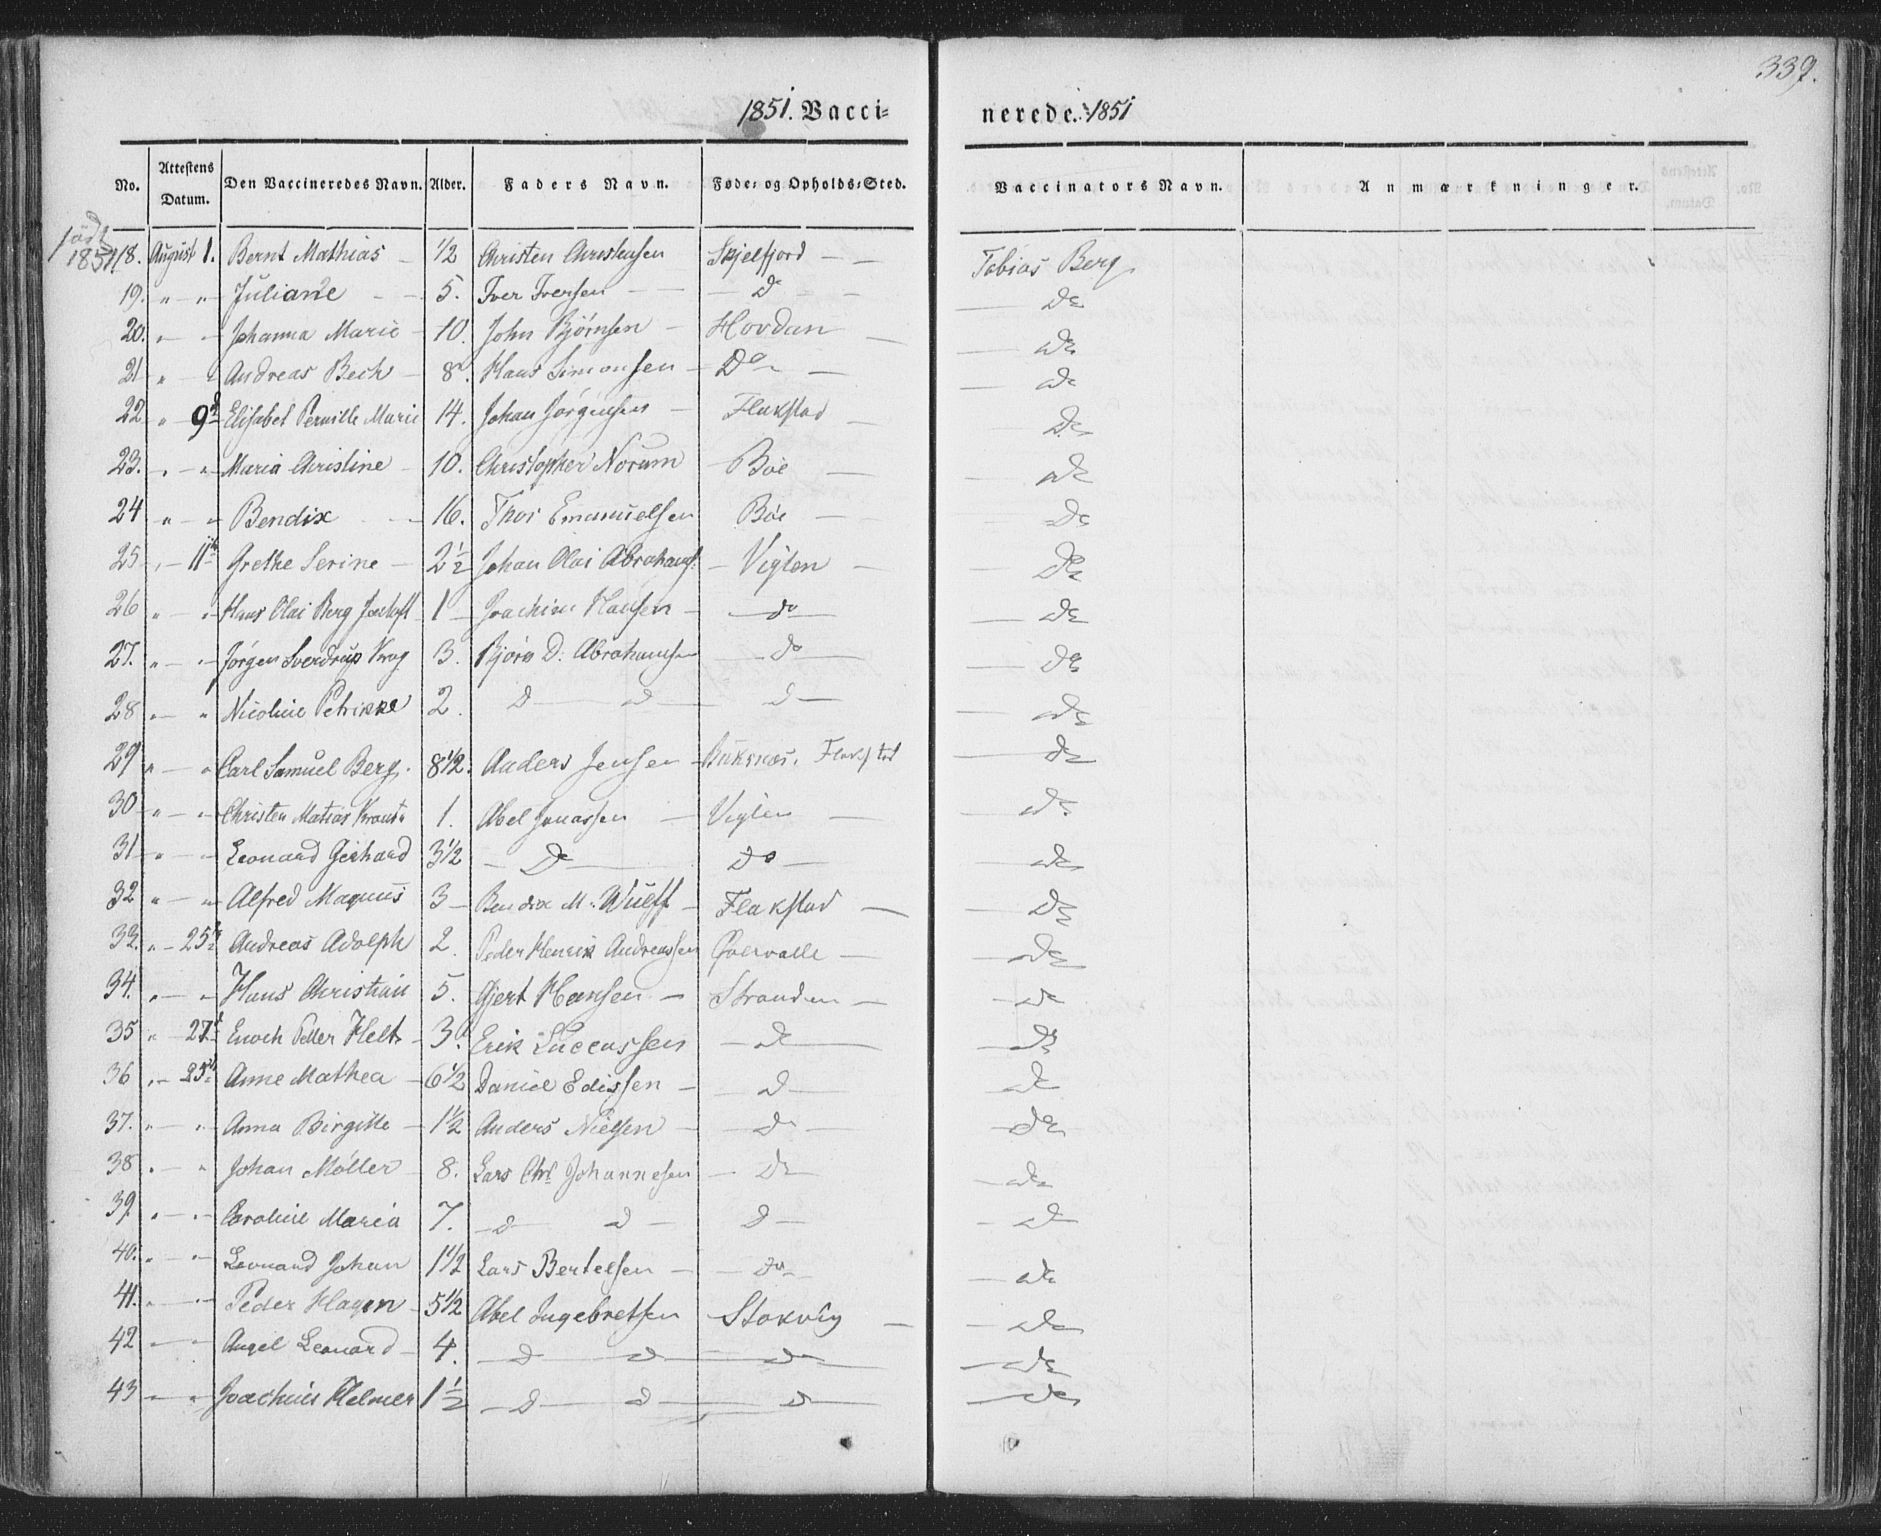 339.
1851. Vacci=
nerede. 1851
No. Attestens Datum. Den Vaccineredes Navn. Alder. Faders Navn. Føde- og Opholds-Sted. Vaccinators Navn. Anmærkninger.
1851
18. August 1. Bernt Mathias – 1/2 Christen Christensen Skjelfjord – – Tobias Berg
19. " – " – Juliane – – 5. Iver Iversen – – – D – – – Do
20. " – " – Johanna Marie – 10. John Bjørnsen – Hovdan – – Do
21 " – " Andreas Bech – 8. Hans Simonsen – Do – – Do
22 " – 9d Elisabet Pernille Marie 14. Johan Jørgensen – Flakstad – – Do
23. " – " – Maria Christine – 10. Christopher Norum – Böe – – Do
24 " – " – Bendix – 16. Thor Emanuelsen Böe – – Do
25 " – 11te Grethe Serine – 2 1/2 Johan Olai Abrahams: – Vigten – – Do
26 " – " – Hans Olai Berg 1 – Joachim Hansen – – do – – Do
27. " – " – Jørgen Sverdrup Krog 3. Bjørn D. Abrahamsen – do – – Do
28 " – " Nicoline Petrikke 2. D – D – D – – Do
29 " – " Carl Samuel Berg. 8 1/2. Anders Jensen – Buksnæs. Flakstad – Do
30 " – " – Christen Matias 1. Abel Jonassen – Vigten – – Do
31 " – " Leonard Gerhard 3 1/2 – Do – Do – – Do
32 " – " Alfred Magnus 3 – Bendix M. Wulff – Flakstad – – Do
33. " – 25 Andreas Adolph 2. Peder Henrik Andreassen Qvalvalle – – Do
34. " – " – Hans Christian 5. Gjert Hansen – Stranden – – Do
35 " – 27 Enoch Peder Helt – 3. Erik Luccassen – Do – – Do
36 " – 25 Anne Mathea – 6 1/2 Daniel Edissen – – D – – Do
37. " – " – Anna Birgitte – 1 1/2 Anders Nielsen – – Do – – Do
38 " – " Johan Møller – 8. Lars Chr. Johannesen – Do – – Do
39 " – " – Caroline Maria 7. – D D – D – – Do
40. " – " – Leonard Johan 1 1/2 Lars Bertelsen – – Do – – Do
41. " – " – Peder Hagen – 5 1/2 Abel Ingebretsen Stokvig – – Do
42 – " – Angel Leonard – 4. – D – D – Do – – Do
43 " – " Joachim Helmer 1 1/2 – D – D – D – – Do